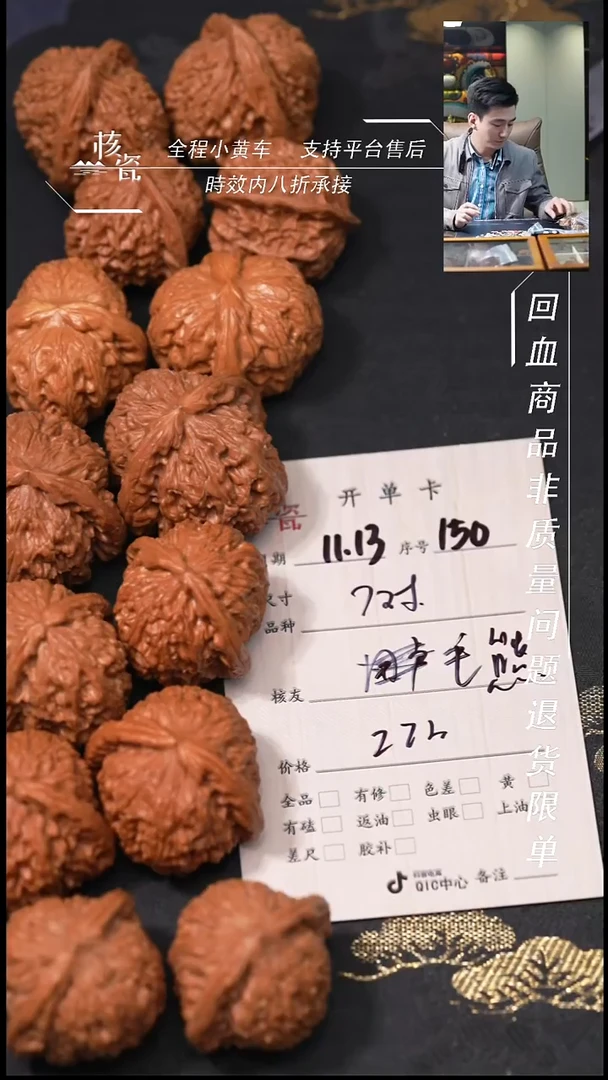 核瓷
全程小黄车 支持平台售后
時效内八折承接
回血商品非质量问题退货限单
开单卡
瓷
期 11.13 序号 150
尺寸 7对
品种
核友 毛熊
价格
全品 有修 色差 黄
有磕 返油 虫眼 上油
差尺 胶补
抖音电商
QIC中心 备注